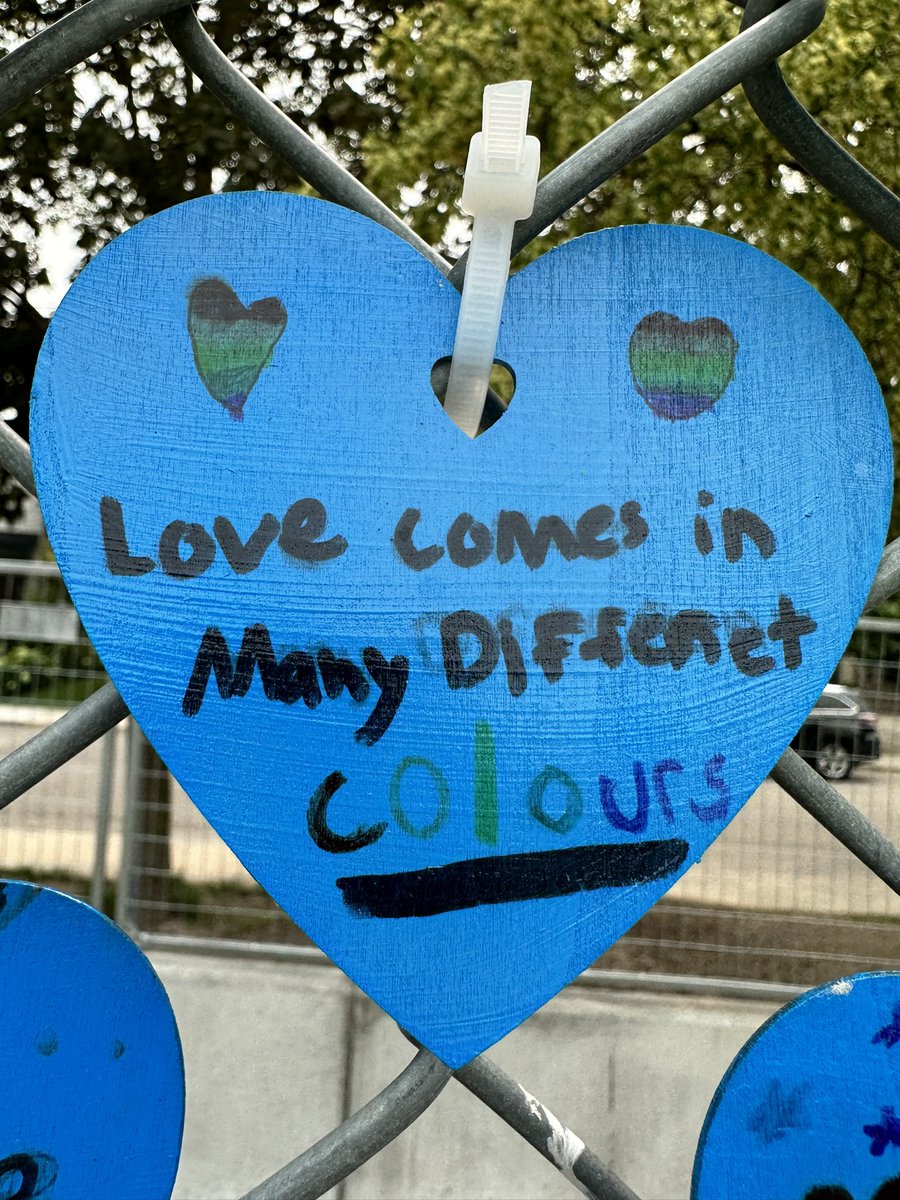 Love comes in
Many Differnet
colours